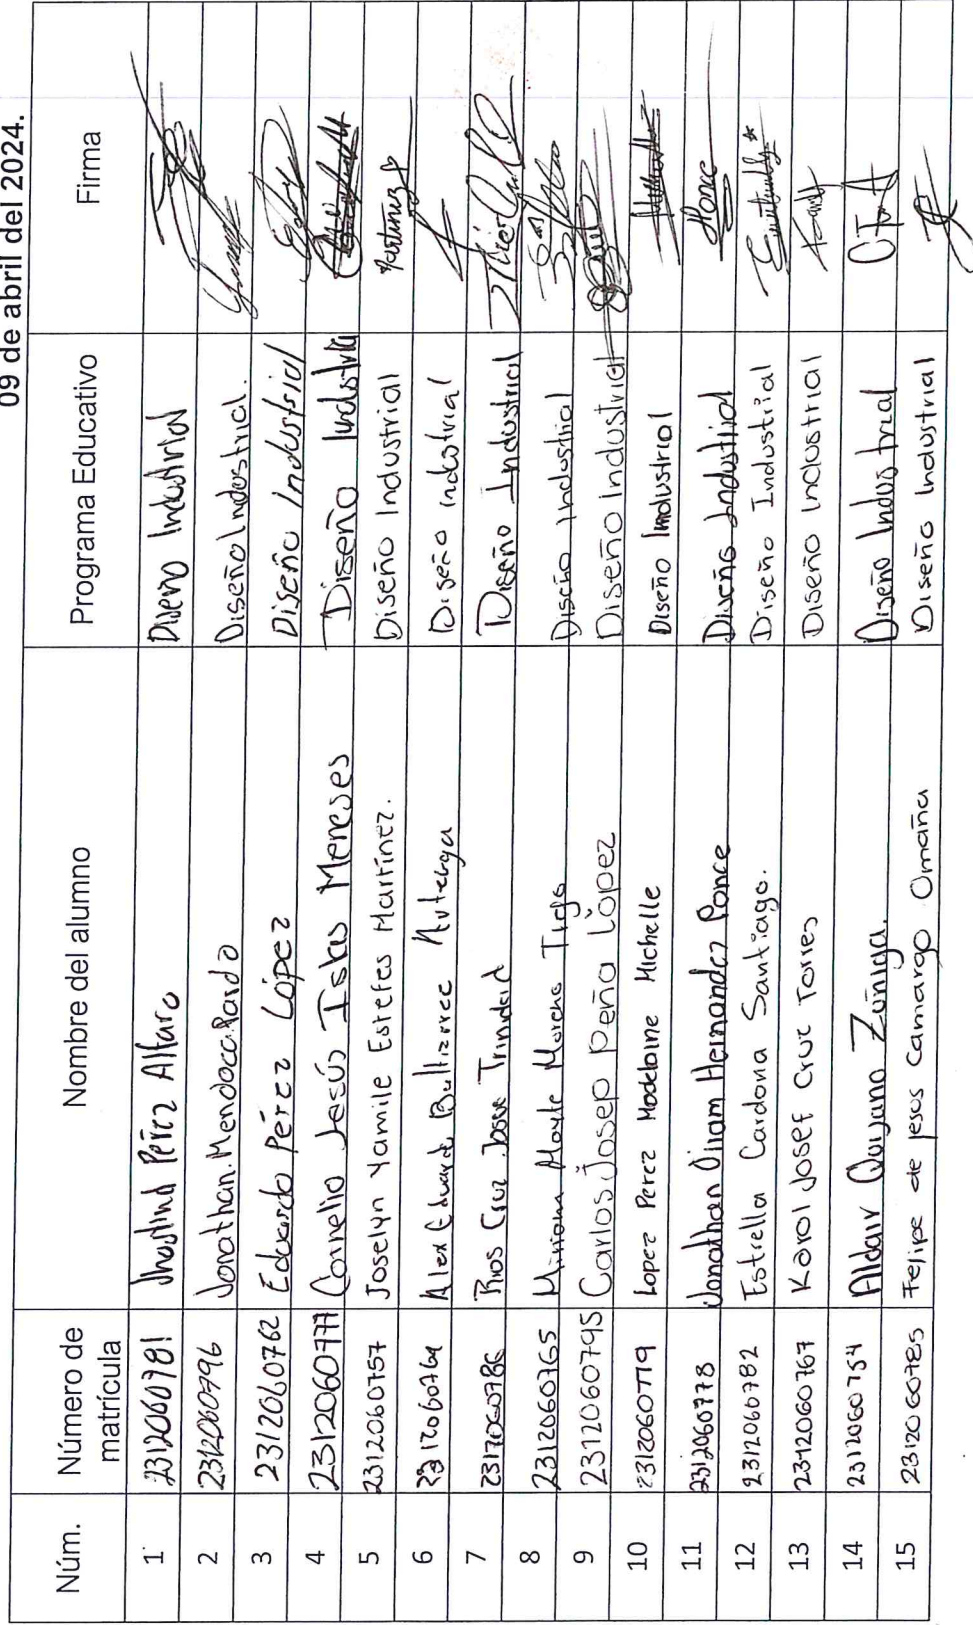 09 de abril del 2024.
Núm. Número de matrícula Nombre del alumno Programa Educativo Firma
1 2312060781 Jhostind Pérez Alfaro Diseño Industrial
2 2312060796 Jonathan Mendoza Pardo Diseño Industrial.
3 2312060762 Eduardo Pérez López Diseño Industrial
4 2312060777 Cornelio Jesús Islas Meneses Diseño Industrial
5 2312060757 Joselyn Yamile Estefes Martínez. Diseño Industrial Martinez
6 2312060769 Alex Eduardo Diseño industrial
7 2312060786 Rios Cruz Josue Trinidad Diseño Industrial
8 2312060765 Miriam Mayte Moreno Trejo Diseño Industrial
9 2312060795 Carlos Josep Peña López Diseño Industrial
10 2312060779 Lopez Perez Madelaine Michelle Diseño Industrial
11 2312060778 Jonathan Oliam Hernandez Ponce Diseño Industrial Ponce
12 2312060782 Estrella Cardona Santiago. Diseño Industrial
13 2312060767 Karol Josef Cruz Torres Diseño Industrial
14 2312060754 Aldair Quijano Zúñiga. Diseño Industrial
15 2312060785 Felipe de jesus Camargo Omaña Diseño Industrial